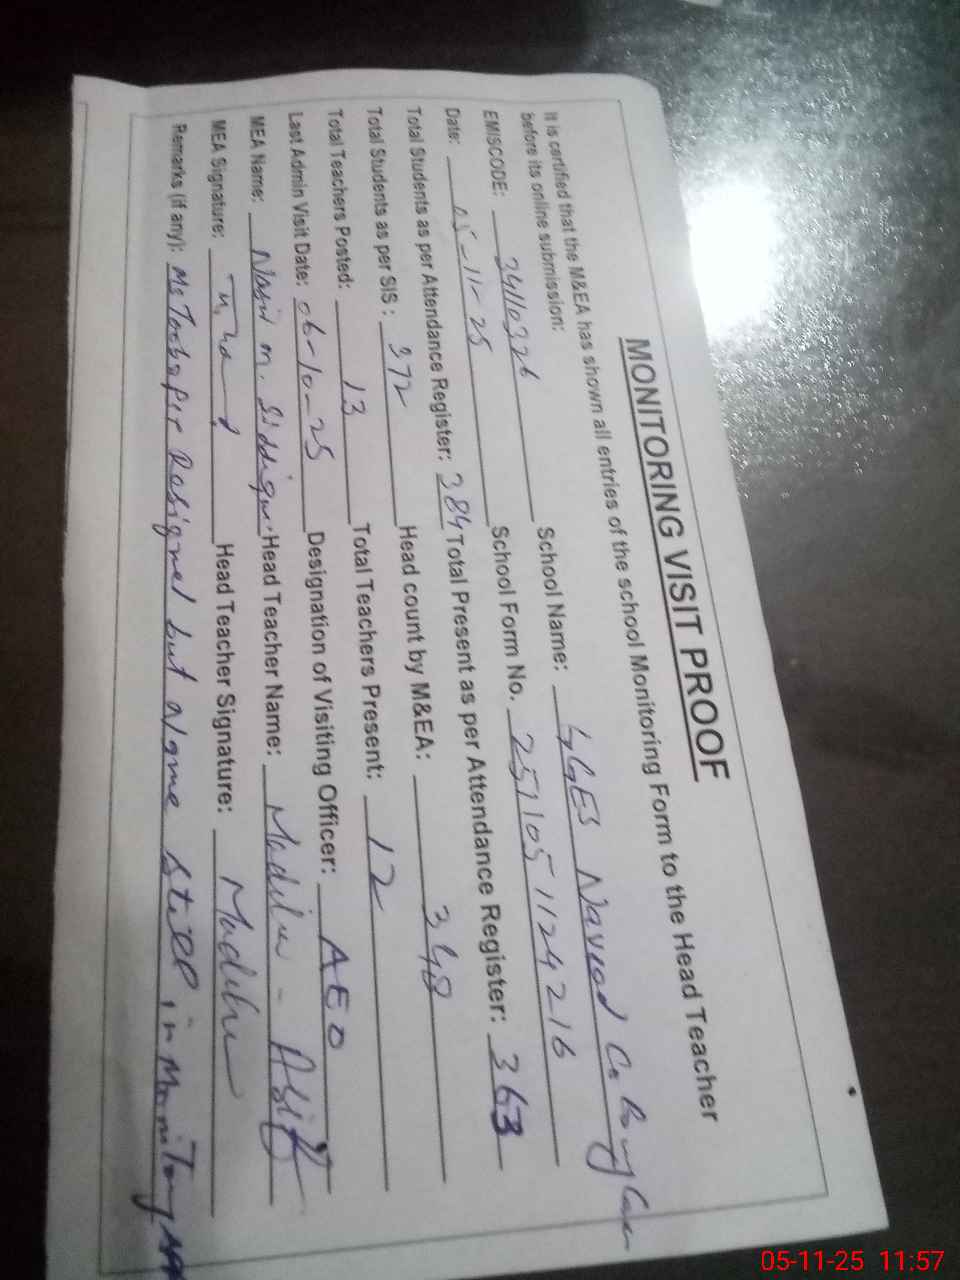 MONITORING VISIT PROOF
It is certified that the M&EA has shown all entries of the school Monitoring Form to the Head Teacher
before its online submission:
EMISCODE: 34110326 School Name: GGES Naveed
Date: 05-11-25 School Form No. 2511051124216
Total Students as per Attendance Register: 384 Total Present as per Attendance Register: 363
Total Students as per SIS : 372 Head count by M&EA: 348
Total Teachers Posted: 13 Total Teachers Present: 12
Last Admin Visit Date: 06-10-25 Designation of Visiting Officer: AEO
MEA Name: Nasir m. Siddique Head Teacher Name: Madiha - Asif
MEA Signature: Head Teacher Signature: Madiha
Remarks (if any): Ms Resigned but still in
05-11-25 11:57